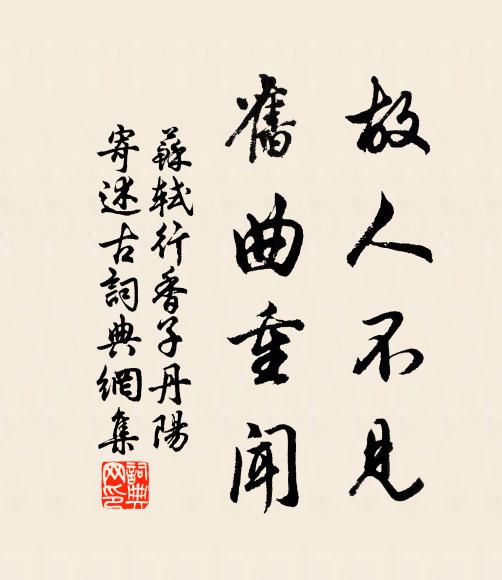 故人不見
舊曲重聞
蘇軾行香子丹陽
寄述古詞典網集
詞典
网印